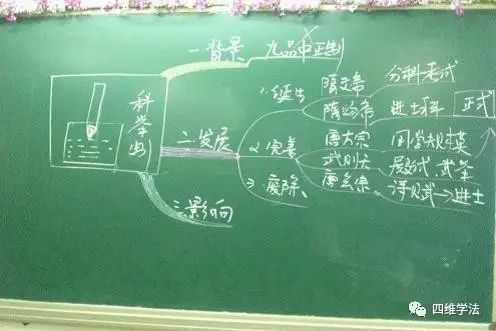 一背景
九品中正制
科举
二.发展
1.诞生
隋文帝
分科考试
隋炀帝
进士科
正式
2.完善
唐太宗
国学规模
武则天
殿试、武举
唐玄宗
诗赋→进士
3.废除
三影响
四维学法